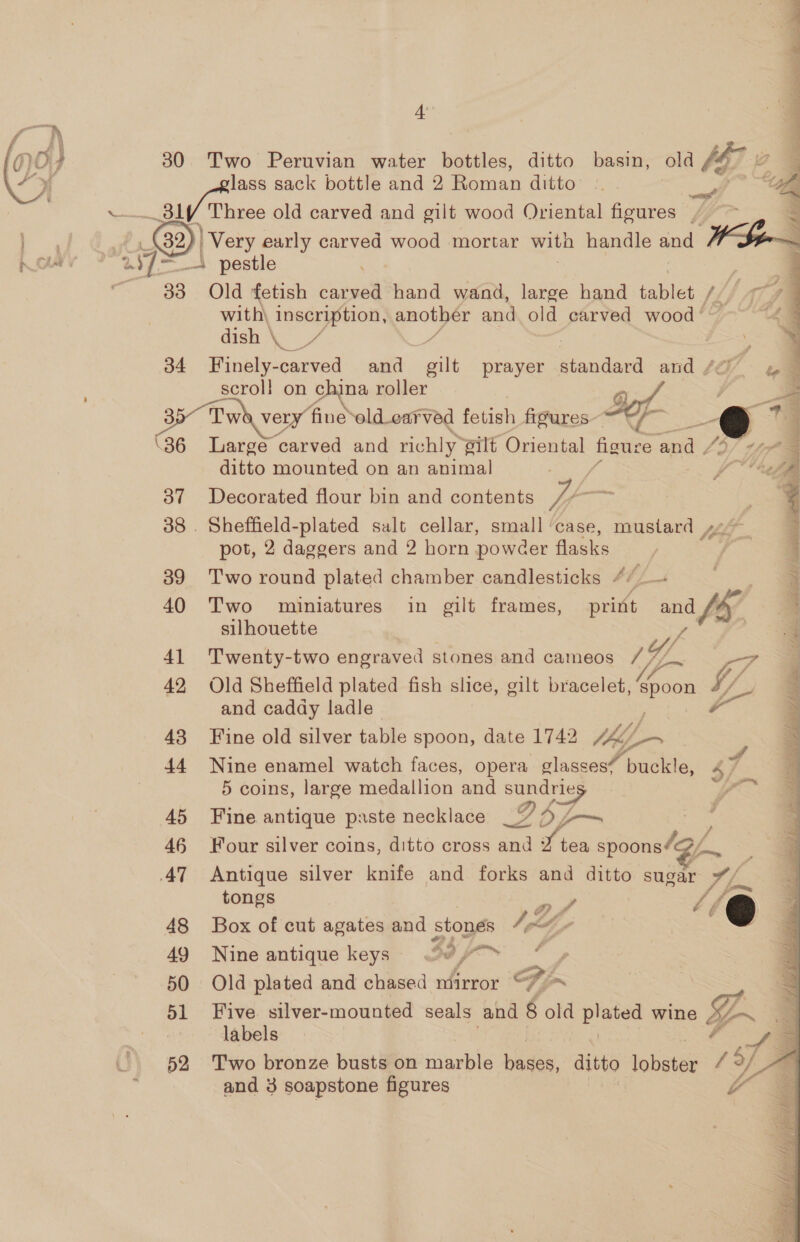 4
30 Two Peruvian water bottles, ditto basin, old
glass sack bottle and 2 Roman ditto
31 Three old carved and gilt wood Oriental figures
32 Very early carved wood mortar with handle and
pestle
33 Old fetish carved hand wand, large hand tablet
with inscription, another and old carved wood
dish
34 Finely-carved and gilt prayer standard and
scroll on china roller
35 Two very fine old carved fetish figures
36 Large carved and richly gilt Oriental figure and
ditto mounted on an animal
37 Decorated flour bin and contents
38 Sheffield-plated salt cellar, small case, mustard
pot, 2 daggers and 2 horn powder flasks
39 Two round plated chamber candlesticks
40 Two miniatures in gilt frames, print and
silhouette
41 Twenty-two engraved stones and cameos
42 Old Sheffield plated fish slice, gilt bracelet, spoon
and caddy ladle
43 Fine old silver table spoon, date 1742
44 Nine enamel watch faces, opera glasses, buckle,
5 coins, large medallion and sundries
45 Fine antique paste necklace
46 Four silver coins, ditto cross and tea spoons
47 Antique silver knife and forks and ditto sugar
tongs
48 Box of cut agates and stones
49 Nine antique keys
50 Old plated and chased mirror
51 Five silver-mounted seals and 8 old plated wine
labels
52 Two bronze busts on marble bases, ditto lobster
and 3 soapstone figures